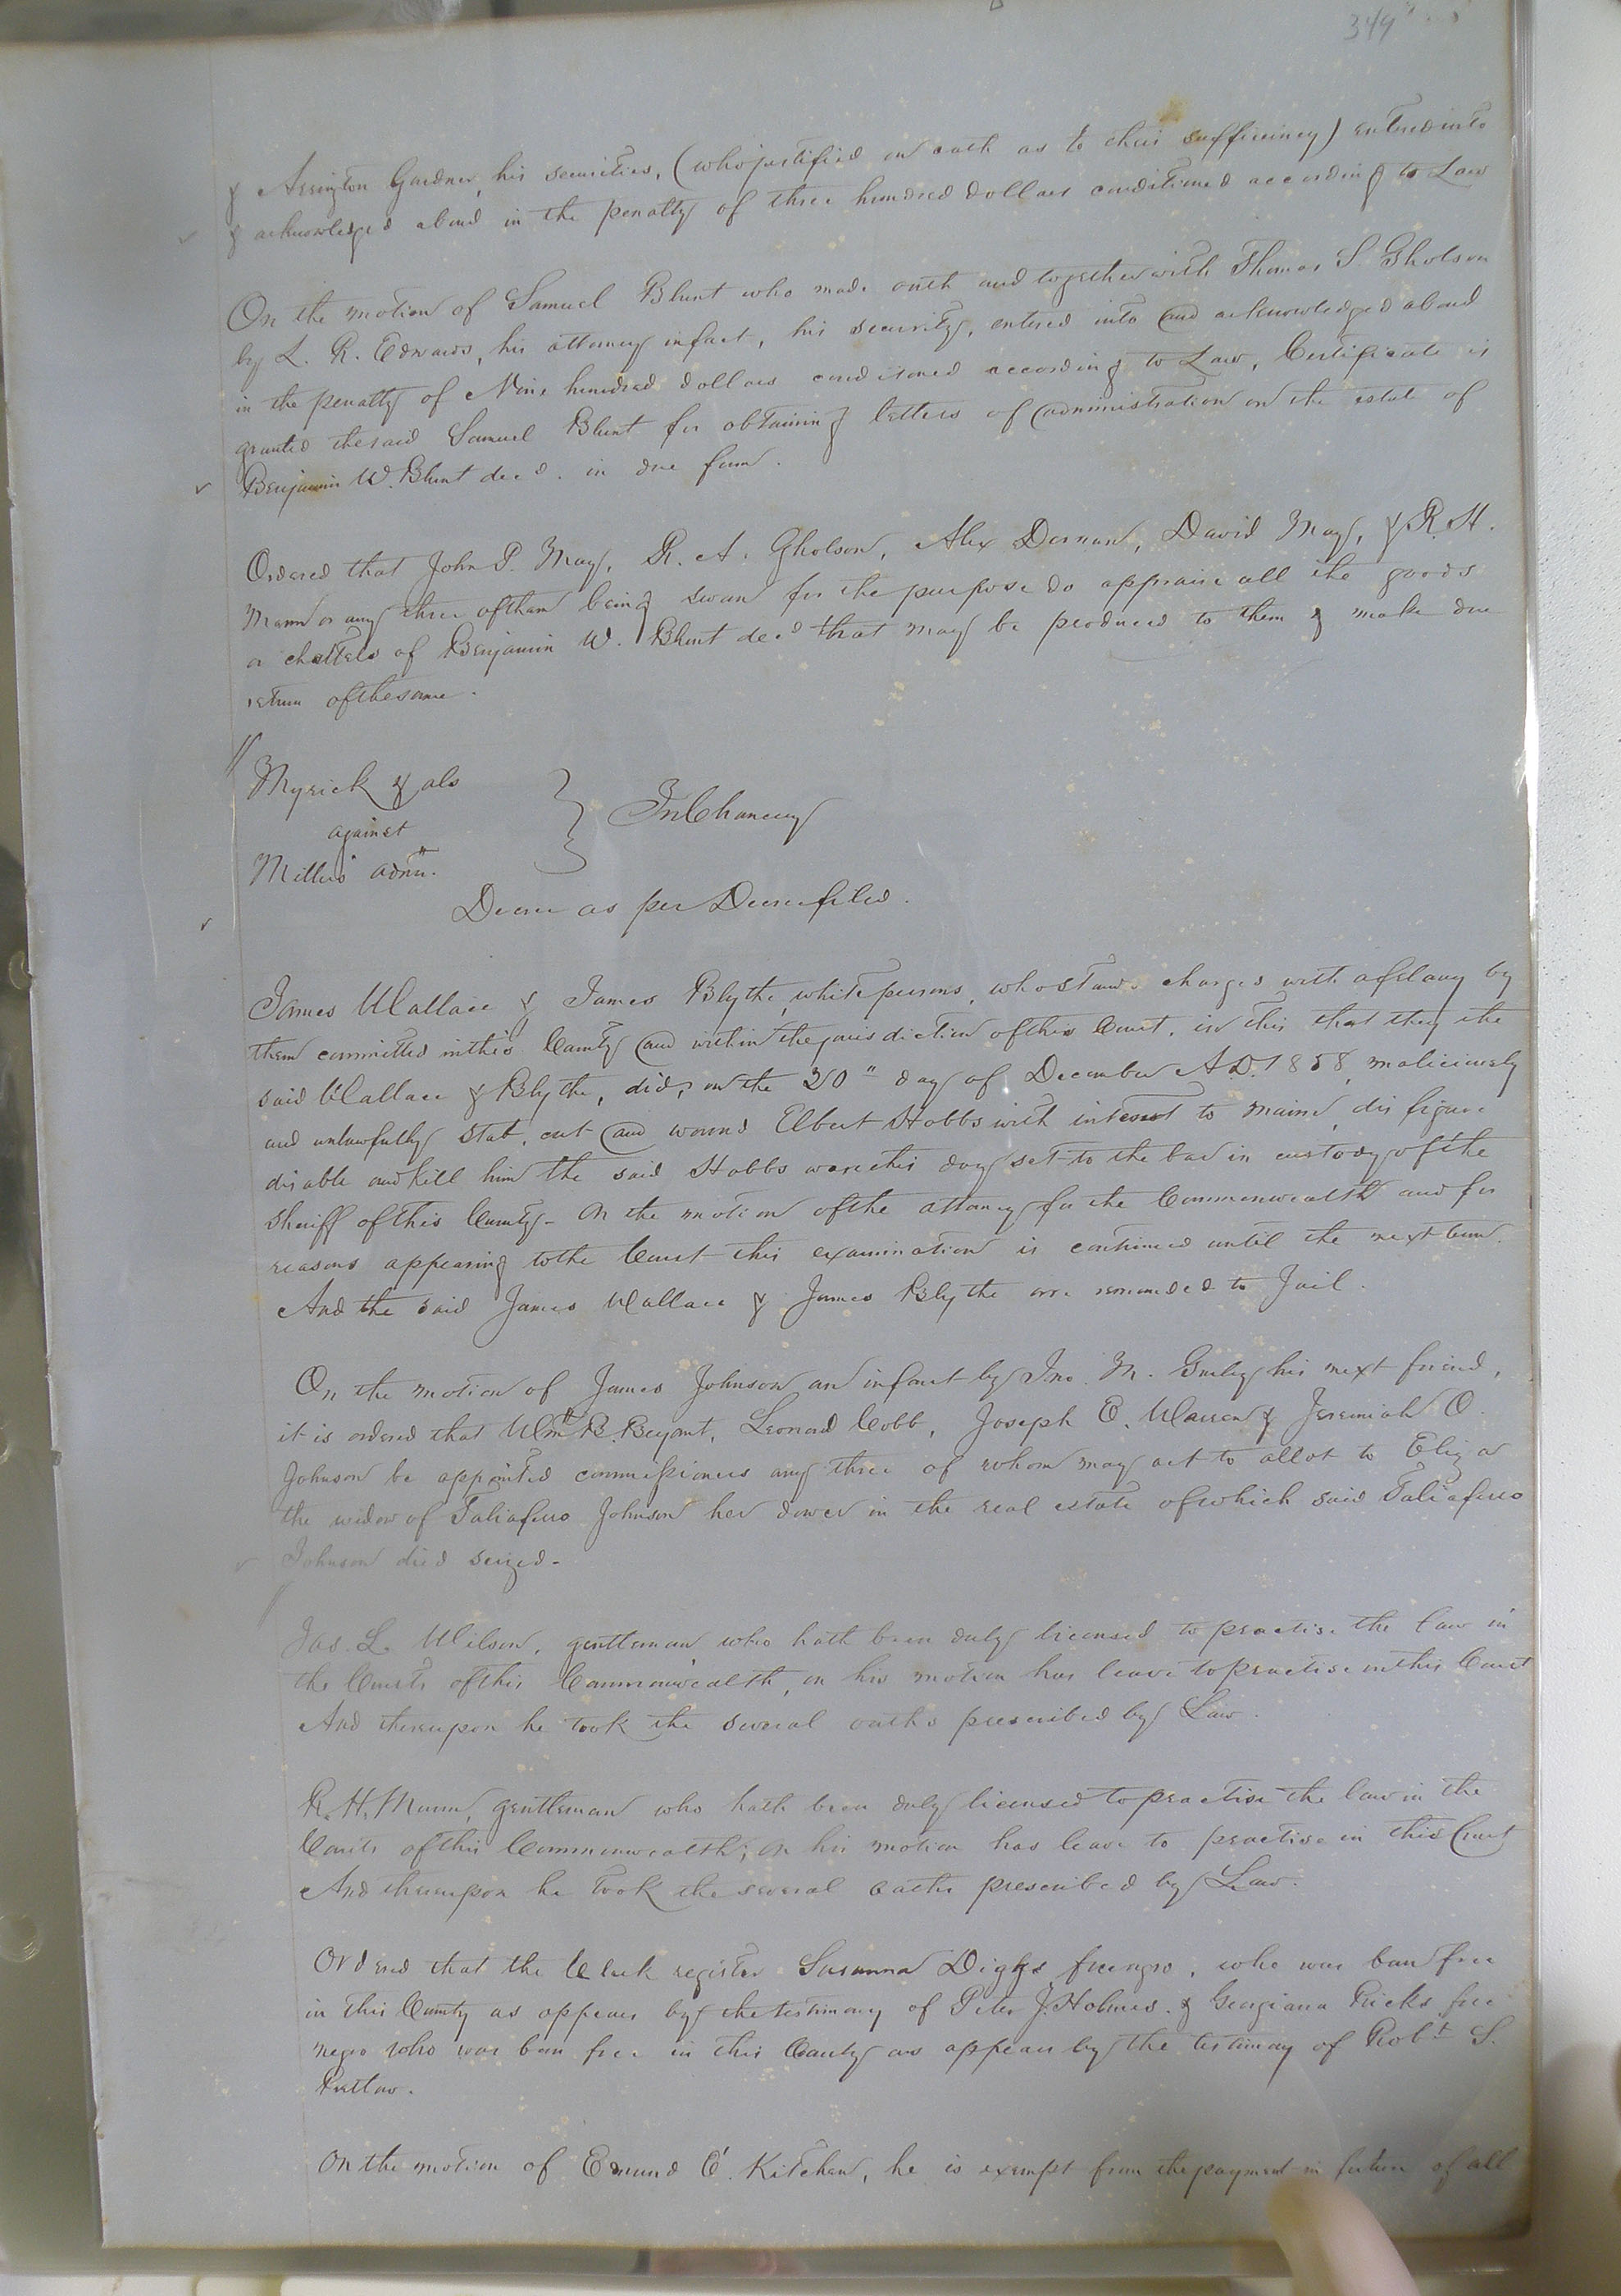 349
& Arrington Gardner, his securities, (who justified on oath as to their sufficiency) entered into
& acknowledged a bond in the penalty of three hundred dollars conditioned according to Law
On the motion of Samuel Blunt who made oath and together with Thomas S. Gholson
by L. R. Edwards, his attorney in fact, his security, entered into and acknowledged a bond
in the penalty of Nine hundred dollars conditioned according to Law, Certificate is
granted the said Samuel Blunt for obtaining letters of administration on the estate of
Benjamin W. Blunt decd. in due form.
Ordered that John P. May, R. A. Gholson, Alex Dornan, David May, & R. H.
Mann or any three of them being sworn for the purpose do appraise all the goods
or chattels of Benjamin W. Blunt decd that may be produced to them & make due
return of the same.
Myrick & als
against
} In Chancery
Millers admr.
Decree as per Decree filed.
James Wallace & James Blythe, white persons, who stand charged with a felony by
them committed in this County and within the jurisdiction of this Court, in this that they the
said Wallace & Blythe, did, on the 30" day of December A.D. 1858, maliciously
and unlawfully stab, cut and wound Elbert Hobbs with intent to maim, disfigure
disable and kill him the said Hobbs were this day set to the bar in custody of the
Sheriff of this County - On the motion of the attorney for the Commonwealth and for
reasons appearing to the Court this examination is continued until the next term.
And the said James Wallace & James Blythe are remanded to Jail.
On the motion of James Johnson an infant by Jno. M. Gurley his next friend,
it is ordered that Wm B. Bryant, Leonard Cobb, Joseph E. Warren & Jeremiah O.
Johnson be appointed commissioners any three of whom may act to allot to Eliza
the widow of Taliaferro Johnson her dower in the real estate of which said Taliaferro
Johnson died seized -
Jas. L. Wilson, gentleman who hath been duly licensed to practise the law in
the Courts of this Commonwealth, on his motion has leave to practise in this Court
And thereupon he took the several oaths prescribed by Law.
R. H. Mann, gentleman who hath been duly licensed to practise the law in the
Courts of this Commonwealth; on his motion has leave to practise in this Court
And thereupon he took the several oaths prescribed by Law.
Ordered that the Clerk register Susanna Diggs free negro, who was born free
in this County as appears by the testimony of Peter J. Holmes. & Georgiana Ricks free
negro who was born free in this County as appears by the testimony of Robt S.
Pretlow.
On the motion of Edmund E. Kitchen, he is exempt from the payment in future of all